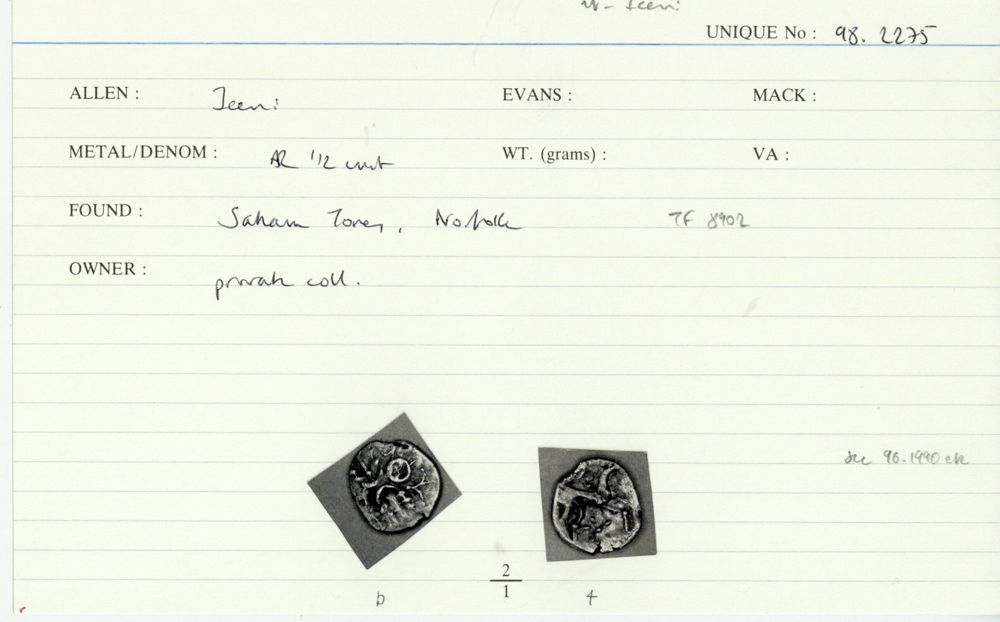 Iceni
UNIQUE No : 98.2275
ALLEN : Iceni EVANS : MACK :
METAL/DENOM : AR 1/2 unit WT. (grams) : VA :
FOUND : Saham Toney, Norfolk TF 8902
OWNER : private coll.
96.1990
2
1
b